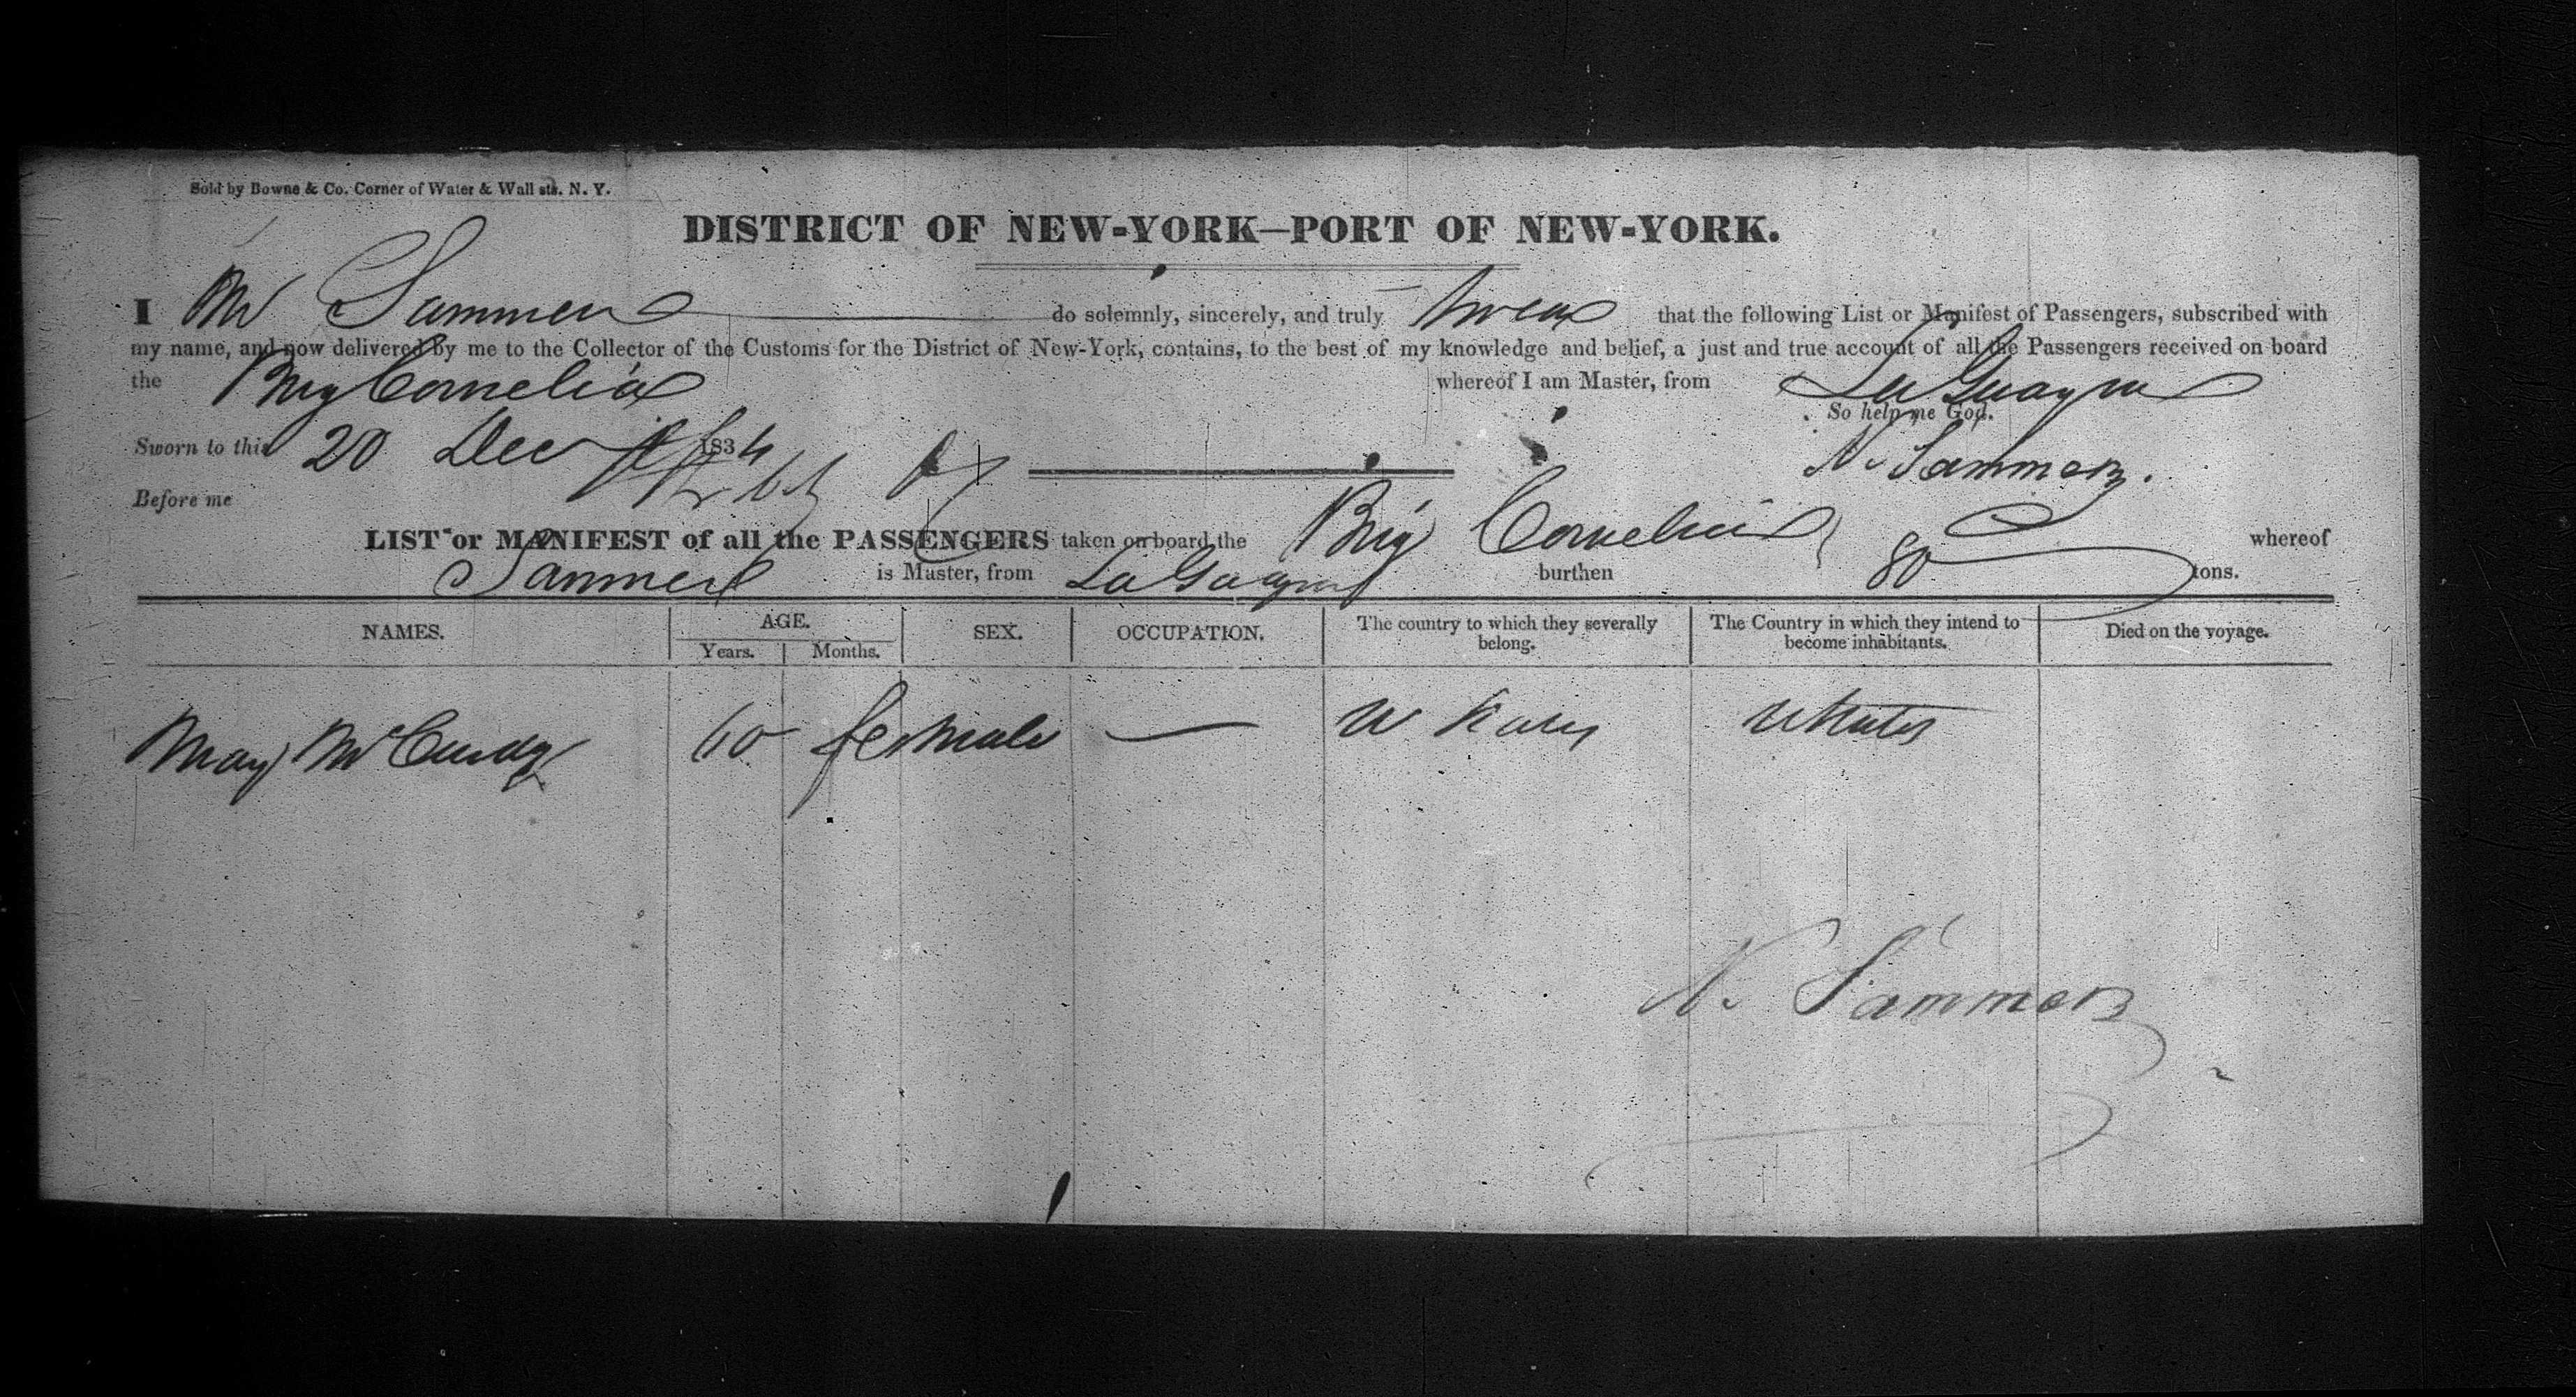 Sold by Bowne & Co. Corner of Water & Wall sts. N. Y.
DISTRICT OF NEW-YORK—PORT OF NEW-YORK.
I Sammers do solemnly, sincerely, and truly swear that the following List or Manifest of Passengers, subscribed with
my name, and now delivered by me to the Collector of the Customs for the District of New-York, contains, to the best of my knowledge and belief, a just and true account of all the Passengers received on board
the Brig Cornelia whereof I am Master, from La Guayra
So help me God.
Sworn to this 20 Dec 1834
N. Sammers.
Before me
LIST or MANIFEST of all the PASSENGERS taken on board the Brig Cornelia whereof
Sammers is Master, from La Guayra burthen 80 tons.
NAMES. AGE. SEX. OCCUPATION. The country to which they severally belong. The Country in which they intend to become inhabitants. Died on the voyage.
Years. Months.
Mary McCurdy 60 female — U States U States
N. Sammers